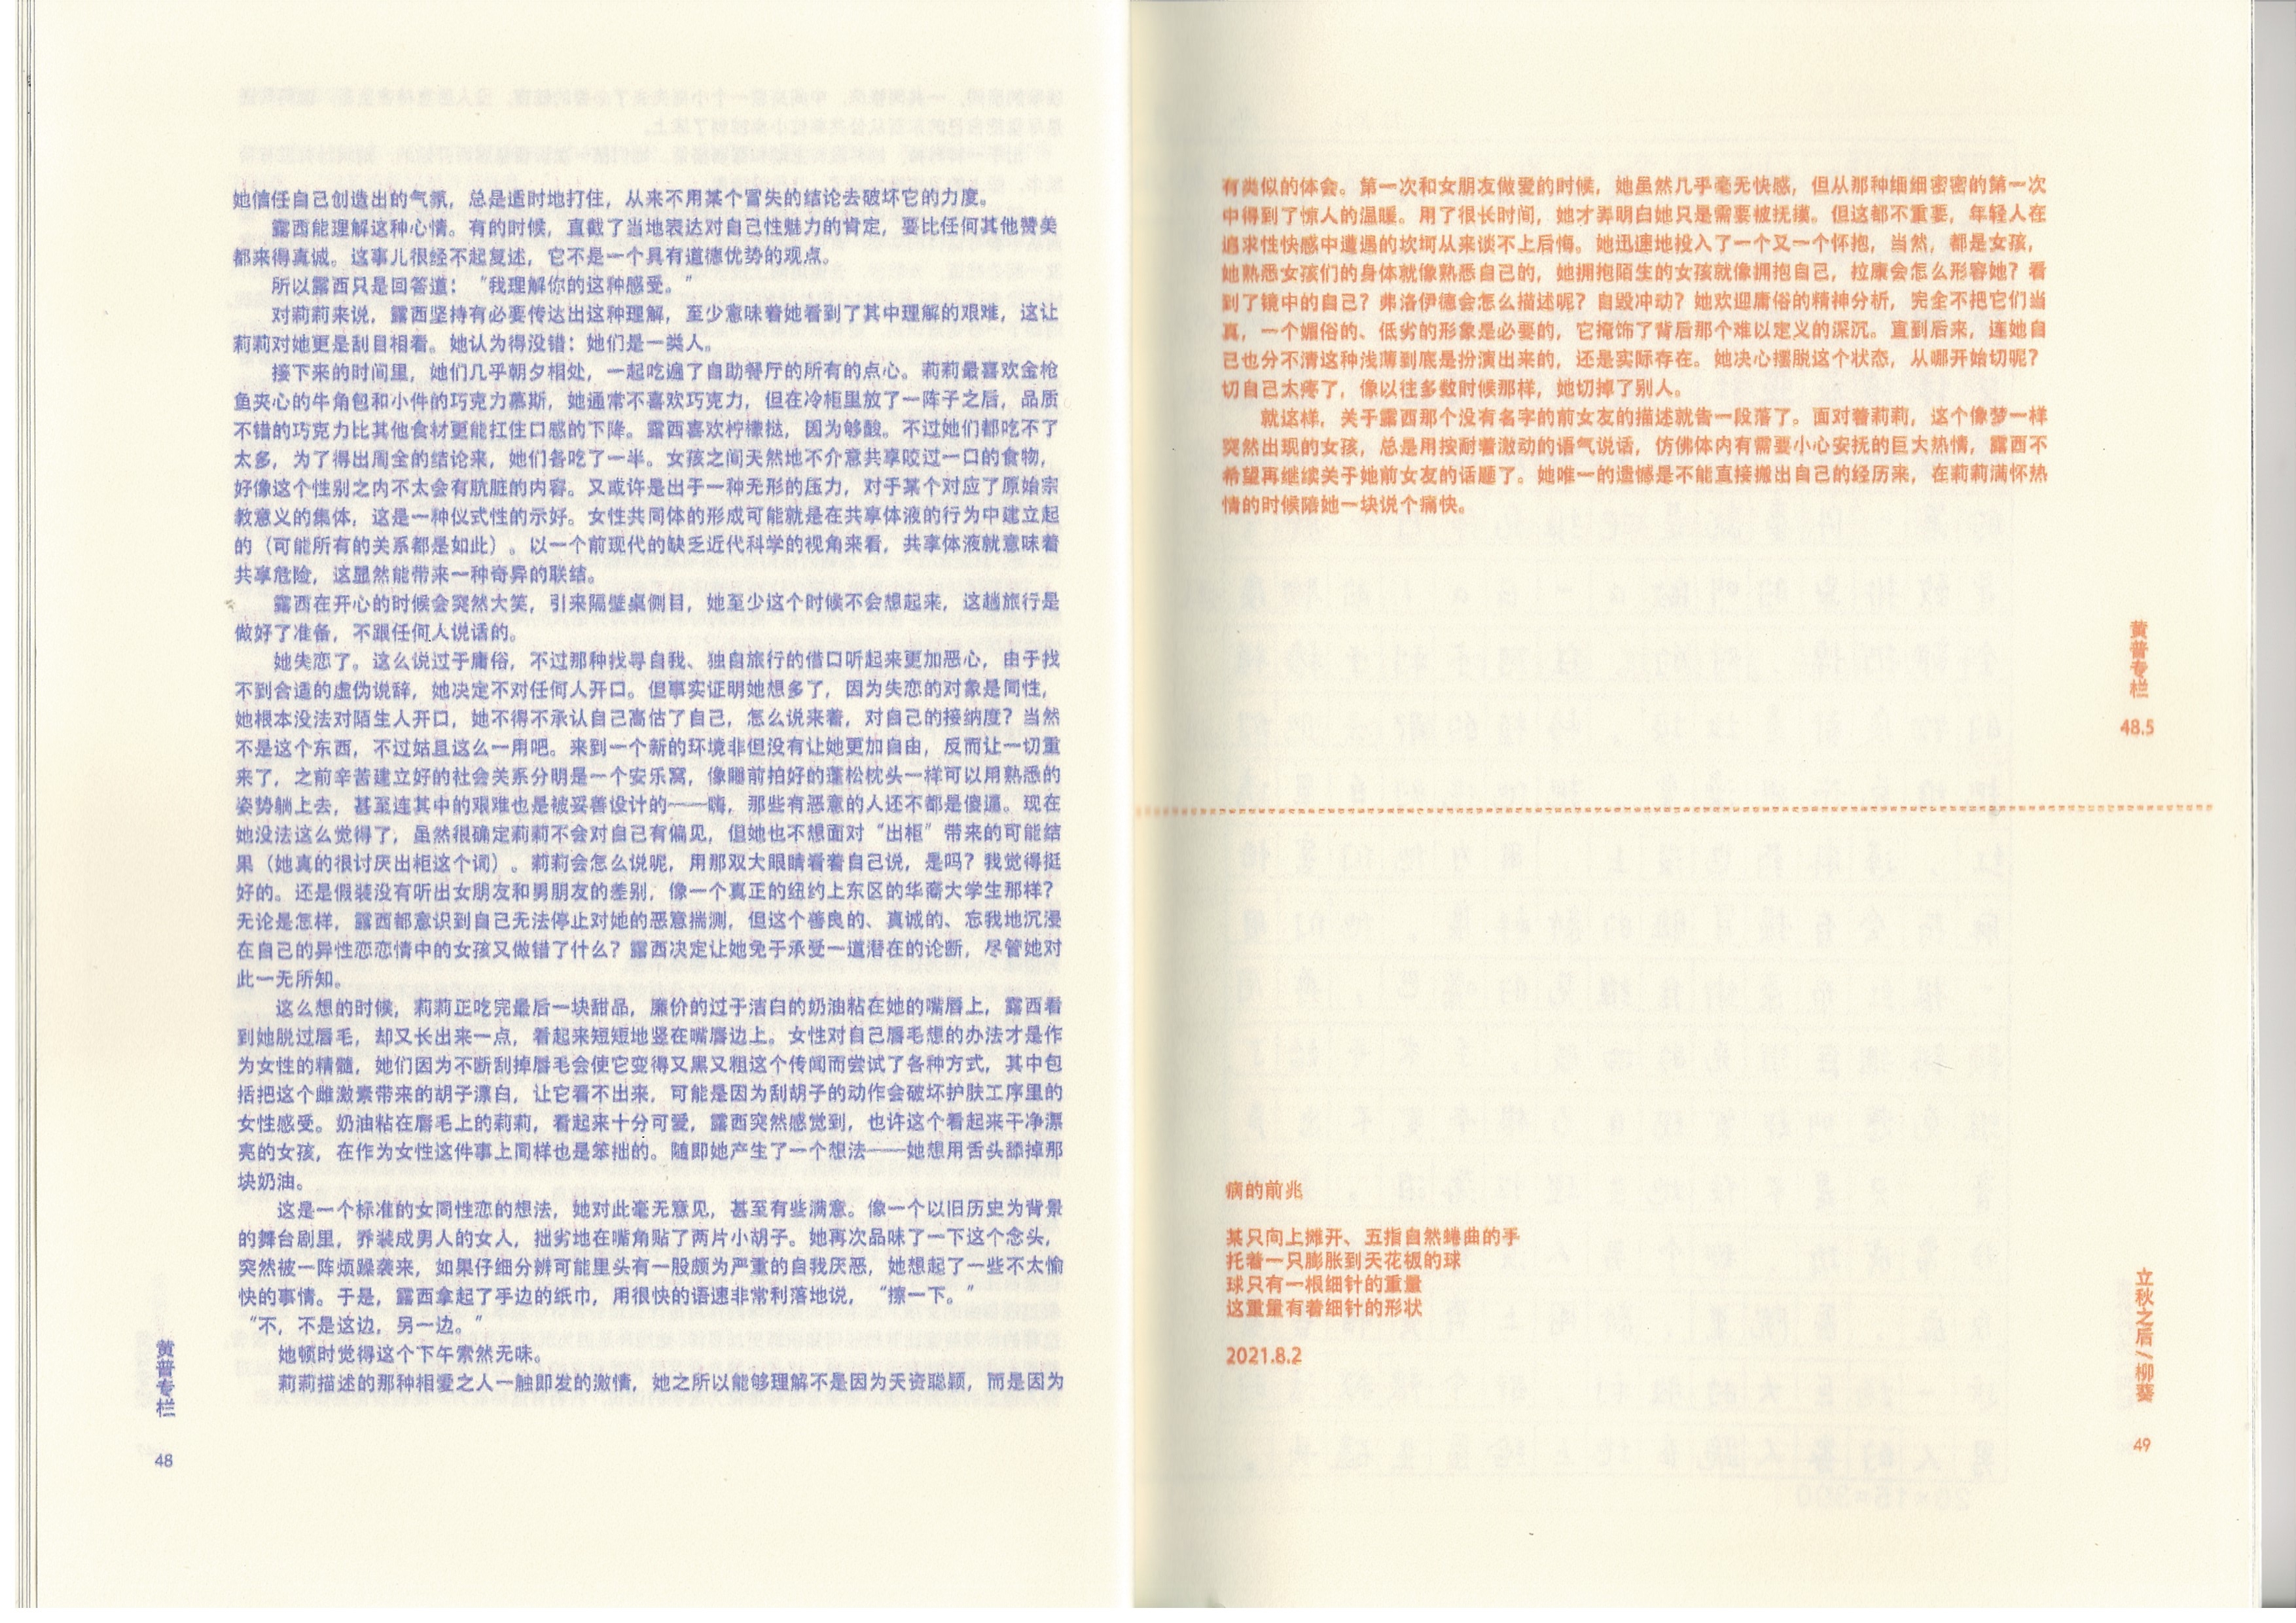 她信任自己创造出的气氛，总是适时地打住，从来不用某个冒失的结论去破坏它的力度。
露西能理解这种心情。有的时候，直截了当地表达对自己性魅力的肯定，要比任何其他赞美
都来得真诚。这事儿很经不起复述，它不是一个具有道德优势的观点。
所以露西只是回答道：“我理解你的这种感受。”
对莉莉来说，露西坚持有必要传达出这种理解，至少意味着她看到了其中理解的艰难，这让
莉莉对她更是刮目相看。她认为得没错：她们是一类人。
接下来的时间里，她们几乎朝夕相处，一起吃遍了自助餐厅的所有的点心。莉莉最喜欢金枪
鱼夹心的牛角包和小件的巧克力慕斯，她通常不喜欢巧克力，但在冷柜里放了一阵子之后，品质
不错的巧克力比其他食材更能扛住口感的下降。露西喜欢柠檬挞，因为够酸。不过她们都吃不了
太多，为了得出周全的结论来，她们各吃了一半。女孩之间天然地不介意共享咬过一口的食物，
好像这个性别之内不太会有肮脏的内容。又或许是出于一种无形的压力，对于某个对应了原始宗
教意义的集体，这是一种仪式性的示好。女性共同体的形成可能就是在共享体液的行为中建立起
的（可能所有的关系都是如此）。以一个前现代的缺乏近代科学的视角来看，共享体液就意味着
共享危险，这显然能带来一种奇异的联结。
露西在开心的时候会突然大笑，引来隔壁桌侧目，她至少这个时候不会想起来，这趟旅行是
做好了准备，不跟任何人说话的。
她失恋了。这么说过于庸俗，不过那种找寻自我、独自旅行的借口听起来更加恶心，由于找
不到合适的虚伪说辞，她决定不对任何人开口。但事实证明她想多了，因为失恋的对象是同性，
她根本没法对陌生人开口，她不得不承认自己高估了自己，怎么说来着，对自己的接纳度？当然
不是这个东西，不过姑且这么一用吧。来到一个新的环境非但没有让她更加自由，反而让一切重
来了，之前辛苦建立好的社会关系分明是一个安乐窝，像睡前拍好的蓬松枕头一样可以用熟悉的
姿势躺上去，甚至连其中的艰难也是被妥善设计的——嗨，那些有恶意的人还不都是傻逼。现在
她没法这么觉得了，虽然很确定莉莉不会对自己有偏见，但她也不想面对“出柜”带来的可能结
果（她真的很讨厌出柜这个词）。莉莉会怎么说呢，用那双大眼睛看着自己说，是吗？我觉得挺
好的。还是假装没有听出女朋友和男朋友的差别，像一个真正的纽约上东区的华裔大学生那样？
无论是怎样，露西都意识到自己无法停止对她的恶意揣测，但这个善良的、真诚的、忘我地沉浸
在自己的异性恋恋情中的女孩又做错了什么？露西决定让她免于承受一道潜在的论断，尽管她对
此一无所知。
这么想的时候，莉莉正吃完最后一块甜品，廉价的过于洁白的奶油粘在她的嘴唇上，露西看
到她脱过唇毛，却又长出来一点，看起来短短地竖在嘴唇边上。女性对自己唇毛想的办法才是作
为女性的精髓，她们因为不断刮掉唇毛会使它变得又黑又粗这个传闻而尝试了各种方式，其中包
括把这个雌激素带来的胡子漂白，让它看不出来，可能是因为刮胡子的动作会破坏护肤工序里的
女性感受。奶油粘在唇毛上的莉莉，看起来十分可爱，露西突然感觉到，也许这个看起来干净漂
亮的女孩，在作为女性这件事上同样也是笨拙的。随即她产生了一个想法——她想用舌头舔掉那
块奶油。
这是一个标准的女同性恋的想法，她对此毫无意见，甚至有些满意。像一个以旧历史为背景
的舞台剧里，乔装成男人的女人，拙劣地在嘴角贴了两片小胡子。她再次品味了一下这个念头，
突然被一阵烦躁袭来，如果仔细分辨可能里头有一股颇为严重的自我厌恶，她想起了一些不太愉
快的事情。于是，露西拿起了手边的纸巾，用很快的语速非常利落地说，“擦一下。”
“不，不是这边，另一边。”
她顿时觉得这个下午索然无味。
莉莉描述的那种相爱之人一触即发的激情，她之所以能够理解不是因为天资聪颖，而是因为
黄普专栏
48
有类似的体会。第一次和女朋友做爱的时候，她虽然几乎毫无快感，但从那种细细密密的第一次
中得到了惊人的温暖。用了很长时间，她才弄明白她只是需要被抚摸。但这都不重要，年轻人在
追求性快感中遭遇的坎坷从来谈不上后悔。她迅速地投入了一个又一个怀抱，当然，都是女孩，
她熟悉女孩们的身体就像熟悉自己的，她拥抱陌生的女孩就像拥抱自己，拉康会怎么形容她？看
到了镜中的自己？弗洛伊德会怎么描述呢？自毁冲动？她欢迎庸俗的精神分析，完全不把它们当
真，一个媚俗的、低劣的形象是必要的，它掩饰了背后那个难以定义的深沉。直到后来，连她自
己也分不清这种浅薄到底是扮演出来的，还是实际存在。她决心摆脱这个状态，从哪开始切呢？
切自己太疼了，像以往多数时候那样，她切掉了别人。
就这样，关于露西那个没有名字的前女友的描述就告一段落了。面对着莉莉，这个像梦一样
突然出现的女孩，总是用按耐着激动的语气说话，仿佛体内有需要小心安抚的巨大热情，露西不
希望再继续关于她前女友的话题了。她唯一的遗憾是不能直接搬出自己的经历来，在莉莉满怀热
情的时候陪她一块说个痛快。
黄普专栏
48.5
病的前兆
某只向上摊开、五指自然蜷曲的手
托着一只膨胀到天花板的球
球只有一根细针的重量
这重量有着细针的形状
2021.8.2
立秋之后/柳葵
49